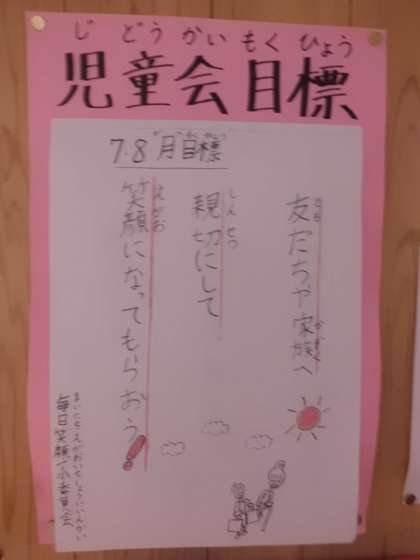 じどうかいもくひょう
児童会目標
がつもくひょう
7.8月目標
とも かぞく
友だちや家族へ
しんせつ
親切にして
えがお
笑顔になってもらおう!
まいにちえがおいちしょういいんかい
毎日笑顔一小委員会